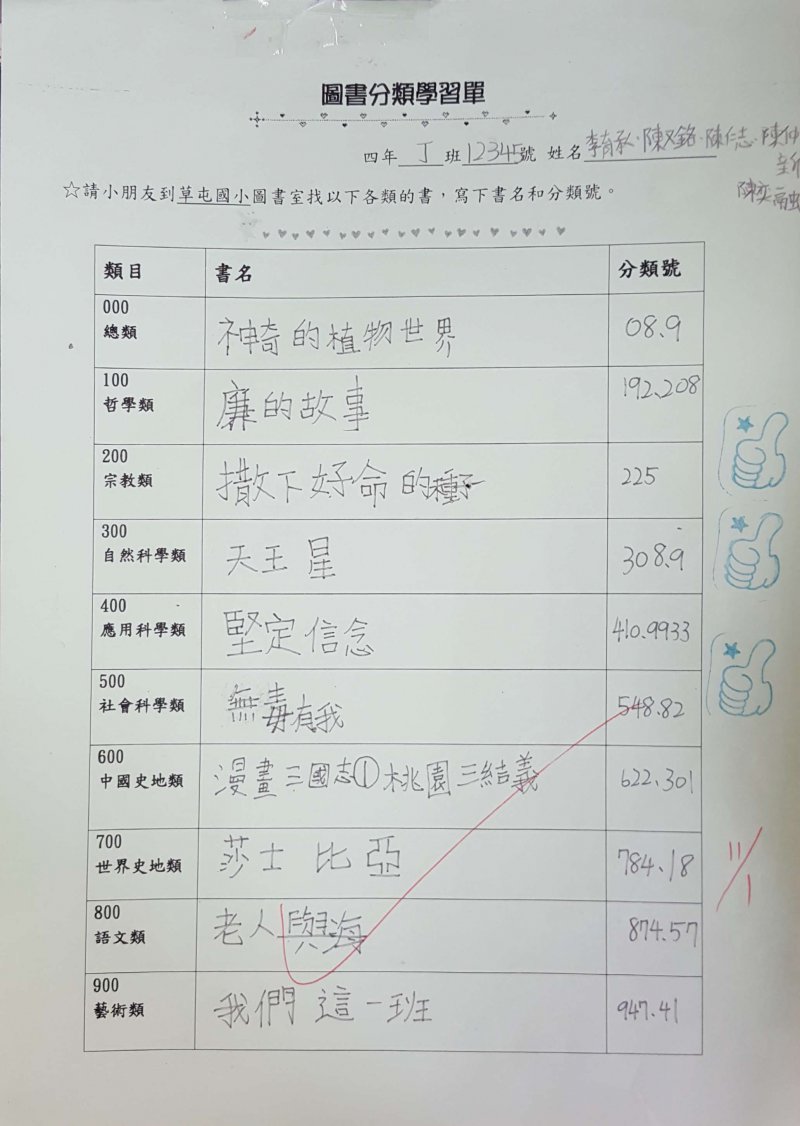 圖書分類學習單
四年丁班12345號 姓名李育承、陳又銘、陳仁志、陳仲
陳奕融
☆請小朋友到草屯國小圖書室找以下各類的書，寫下書名和分類號。
類目 書名 分類號
000
總類 神奇的植物世界 08.9
100
哲學類 廉的故事 192.208
200
宗教類 撒下好命的種子 225
300
自然科學類 天王星 308.9
400
應用科學類 堅定信念 410.9933
500
社會科學類 無毒有我 548.82
600
中國史地類 漫畫三國志①桃園三結義 622.301
700
世界史地類 莎士比亞 784.18
800
語文類 老人與海 874.57
900
藝術類 我們這一班 947.41
11/1